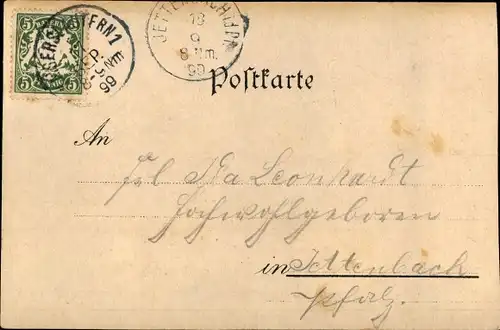 5 5
5 5
TERN 1
8-9 Nm
99
JETTENBACH
18
9
8 Nm.
99
Postkarte
An
Frl Ida Leonhardt
Hochwohlgeboren
in Jettenbach
Pfalz.